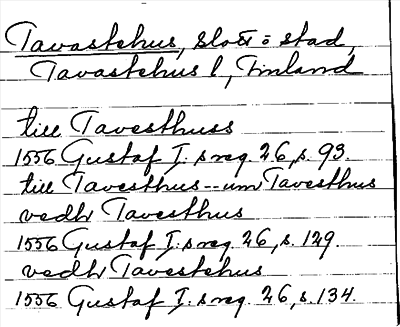 Tavastehus, slott o stad,
Tavastehus l, Finland
till Tavesthuss
1556 Gustaf I:s reg. 26, s. 93.
till Tavesthus--um Tavesthus
vedh Tavesthus
1556 Gustaf I:s reg. 26, s. 129.
vedh Tavestehus
1556 Gustaf I:s reg. 26, s. 134.